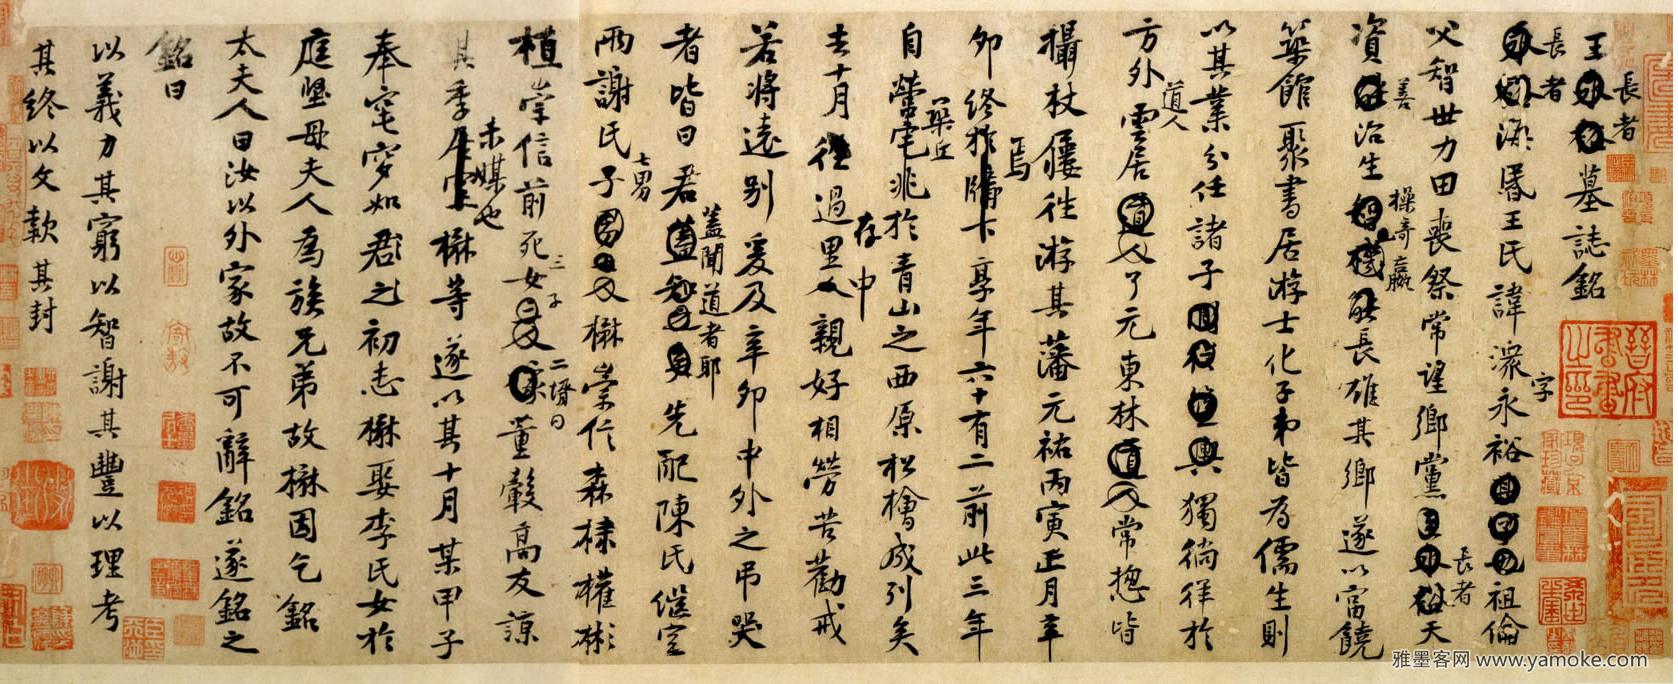 王長者墓誌銘
長者海昬王氏諱潀字永裕祖倫
父智世力田喪祭常望鄉黨長者天
資善治生操奇贏長雄其鄉遂以富饒
築館聚書居游士化子弟皆為儒生則
以其業分任諸子獨徜徉於
方外道人雲居了元東林常揔皆
攝杖屨往游其藩元祐丙寅正月辛
卯終於牖下享年六十有二前此三年
自營築丘宅兆於青山之西原松檜成列矣
去十月過里存中親好相勞苦勸戒
若將遠別爰及辛卯中外之弔哭
者皆曰君蓋聞道者耶先配陳氏繼室
兩謝氏七男子楙崇信森棣權彬
植崇信前死女三子二壻曰董轂高友諒
其季未媒也楙等遂以其十月某甲子
奉窀穸如君之初志楙娶李氏女於
庭堅母夫人為族兄弟故楙因乞銘
太夫人曰汝以外家故不可辭銘遂銘之
銘曰
以義力其窮以智謝其豐以理考
其終以文款其封
雅墨客网 www.yamoke.com